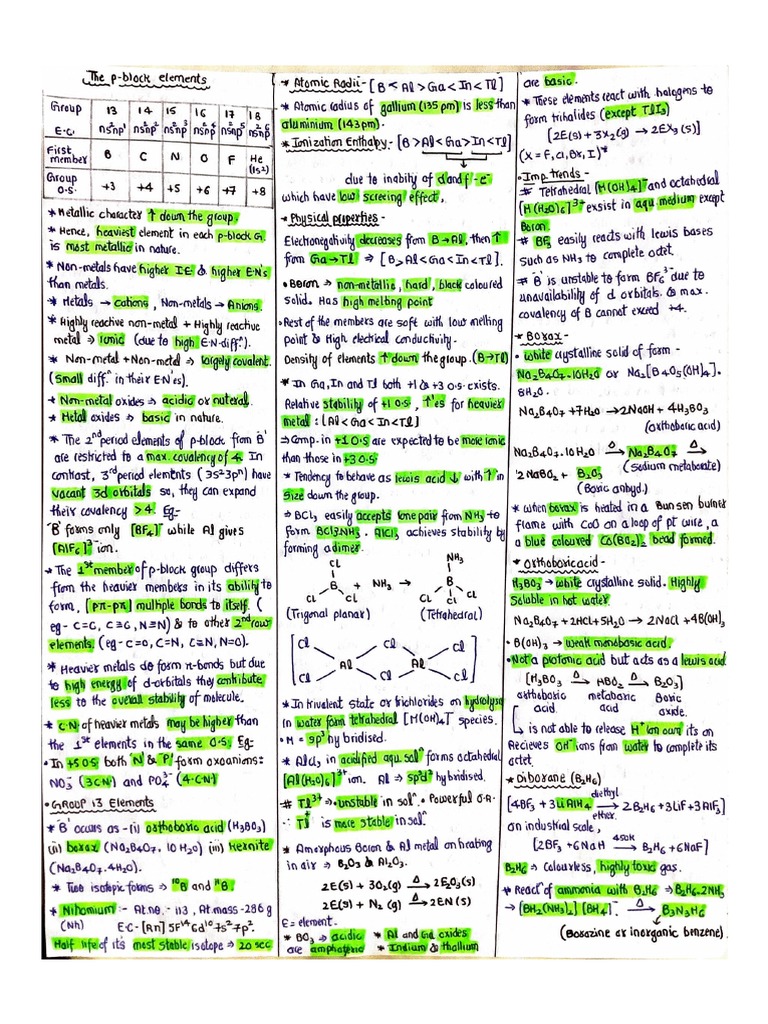 The p-block elements
Group 13 14 15 16 17 18
E.C. ns²np¹ ns²np² ns²np³ ns²np⁴ ns²np⁵ ns²np⁶
First member B C N O F He (1s²)
Group O.S. +3 +4 +5 +6 +7 +8
* Metallic character ↑ down the group.
* Hence, heaviest element in each p-block G.
is most metallic in nature.
* Non-metals have higher I.E & higher E.N's
than metals.
* Metals → cations, Non-metals → Anions.
* Highly reactive non-metal + Highly reactive
metal ⇒ ionic (due to high E.N-diff.).
* Non-metal + Non-metal ⇒ largely covalent.
(small diff. in their E.N'es).
* Non-metal oxides ⇒ acidic or nuteral.
* Metal oxides ⇒ basic in nature.
* The 2nd period elements of p-block from 'B'
are restricted to a max. covalency of 4. In
contrast, 3rd period elements (3s²3pⁿ) have
vacant 3d orbitals so, they can expand
their covalency > 4. Eg:-
'B' forms only [BF₄]⁻ while Al gives
[AlF₆]³⁻ ion.
* The 1st member of p-block group differs
from the heavier members in its ability to
form, [pπ-pπ] multiple bonds to itself. (
eg- C=C, C≡C, N≡N) & to other 2nd row
elements. (eg- C=O, C=N, C≡N, N=O).
* Heavier metals do form π-bonds but due
to high energy of d-orbitals they contribute
less to the overall stability of molecule.
* C.N of heavier metals may be higher than
the 1st elements in the same O.S. Eg:-
• In +5 O.S both 'N' & 'P' form oxoanions:
NO₃⁻ (3 C.N) and PO₄³⁻ (4 C.N)
• GROUP 13 Elements
* 'B' occurs as - (i) orthoboric acid (H₃BO₃)
(ii) borax (Na₂B₄O₇.10 H₂O) (iii) Kernite
(Na₂B₄O₇.4H₂O).
* Two isotopic forms ⇒ ¹⁰B and ¹¹B.
* Nihonium :- At.no. - 113, At.mass - 286 g
(Nh) E.C- [Rn] 5F¹⁴ 6d¹⁰ 7s² 7p¹.
Half life of it's most stable isotope ⇒ 20 sec
* Atomic Radii - [B < Al > Ga < In < Tl]
* Atomic radius of gallium (135 pm) is less than
aluminium (143 pm).
* Ionization Enthalpy - [B > Al < Ga > In < Tl]
due to inabity of d and f -e⁻
which have low screeing effect.
* Physical properties -
Electronegativity decreases from B → Al, then ↑
from Ga → Tl ⇒ [B > Al < Ga < In < Tl].
• Boron ⇒ non-metallic, hard, black coloured
solid. Has high melting point
• Rest of the members are soft with low melting
point & High electrical conductivity.
Density of elements ↑ down the group. (B → Tl)
* In Ga, In and Tl both +1 & +3 O.S. exists.
Relative stability of +1 O.S, ↑'es for heavier
metal : [Al < Ga < In < Tl]
⇒ Comp. in +1 O.S are expected to be more ionic
than those in +3 O.S
* Tendency to behave as lewis acid ↓ with ↑ in
size down the group.
⇒ BCl₃ easily accepts lone pair from NH₃ to
form BCl₃.NH₃. AlCl₃ achieves stability by
forming a dimer.
Cl Cl B Cl + NH₃ → NH₃ B Cl Cl Cl
(Trigonal planar) (Tetrahedral)
Cl Cl Cl
Al Al
Cl Cl Cl
* In trivalent state or trichlorides on hydrolyse
in water form tetrahedral [M(OH)₄]⁻ species.
• M = sp³ hybridised.
* AlCl₃ in acidified aqu. solⁿ forms octahedral
[Al(H₂O)₆]³⁺ ion. Al ⇒ sp³d² hybridised.
# Tl³⁺ ⇒ unstable in solⁿ. • Powerful O.A.
∴ Tl⁺ is more stable in solⁿ
* Amorphous Boron & Al metal on heating
in air ⇒ B₂O₃ & Al₂O₃.
2E(s) + 3O₂(g) Δ→ 2E₂O₃(s)
2E(s) + N₂(g) Δ→ 2EN(s)
E = element.
* BO₃ → acidic * Al and Ga oxides
are amphoteric * Indium & thallium
are basic.
* These elements react with halogens to
form trihalides (except TlI₃)
[2E(s) + 3X₂(g) → 2EX₃(s)]
(X = F, Cl, Br, I)*
• Imp. trends -
# Tetrahedral [M(OH)₄]⁻ and octahedral
[M(H₂O)₆]³⁺ exsist in aqu. medium except
Boron.
# BF₃ easily reacts with lewis bases
such as NH₃ to complete octet.
# 'B' is unstable to form BF₆³⁻ due to
unavailability of d orbitals & max.
covalency of B cannot exceed +4.
* Borax -
• white crystalline solid of form -
Na₂B₄O₇.10H₂O or Na₂[B₄O₅(OH)₄].
8H₂O.
Na₂B₄O₇ + 7H₂O → 2NaOH + 4H₃BO₃
(orthoboric acid)
Na₂B₄O₇.10H₂O Δ→ Na₂B₄O₇ Δ→
2NaBO₂ + B₂O₃ (Sodium metaborate)
(Boric anhyd.)
* when borax is heated in a Bunsen bulner
flame with CoO on a loop of pt wire, a
a blue coloured Co(BO₂)₂ bead formed.
* Orthoboric acid -
H₃BO₃ → white crystalline solid. Highly
Soluble in hot water.
Na₂B₄O₇ + 2HCl + 5H₂O → 2NaCl + 4B(OH)₃
• B(OH)₃ → weak monobasic acid.
• Not a protonic acid but acts as a lewis acid
[H₃BO₃ Δ→ HBO₂ Δ→ B₂O₃]
orthoboric acid metaboric acid Boric oxide.
↳ is not able to release H⁺ ion own its on
Recieves OH⁻ ions from water to complete its
octet.
* Diborane (B₂H₆)
[4BF₃ + 3LiAlH₄ diethyl ether→ 2B₂H₆ + 3LiF + 3AlF₃]
on industrial scale,
[2BF₃ + 6NaH 450K→ B₂H₆ + 6NaF]
B₂H₆ → Colourless, highly toxic gas.
* Reactⁿ of ammonia with B₂H₆ ⇒ B₂H₆.2NH₃
→ [BH₂(NH₃)₂]⁺[BH₄]⁻. Δ→ B₃N₃H₆
(Borazine or inorganic benzene).